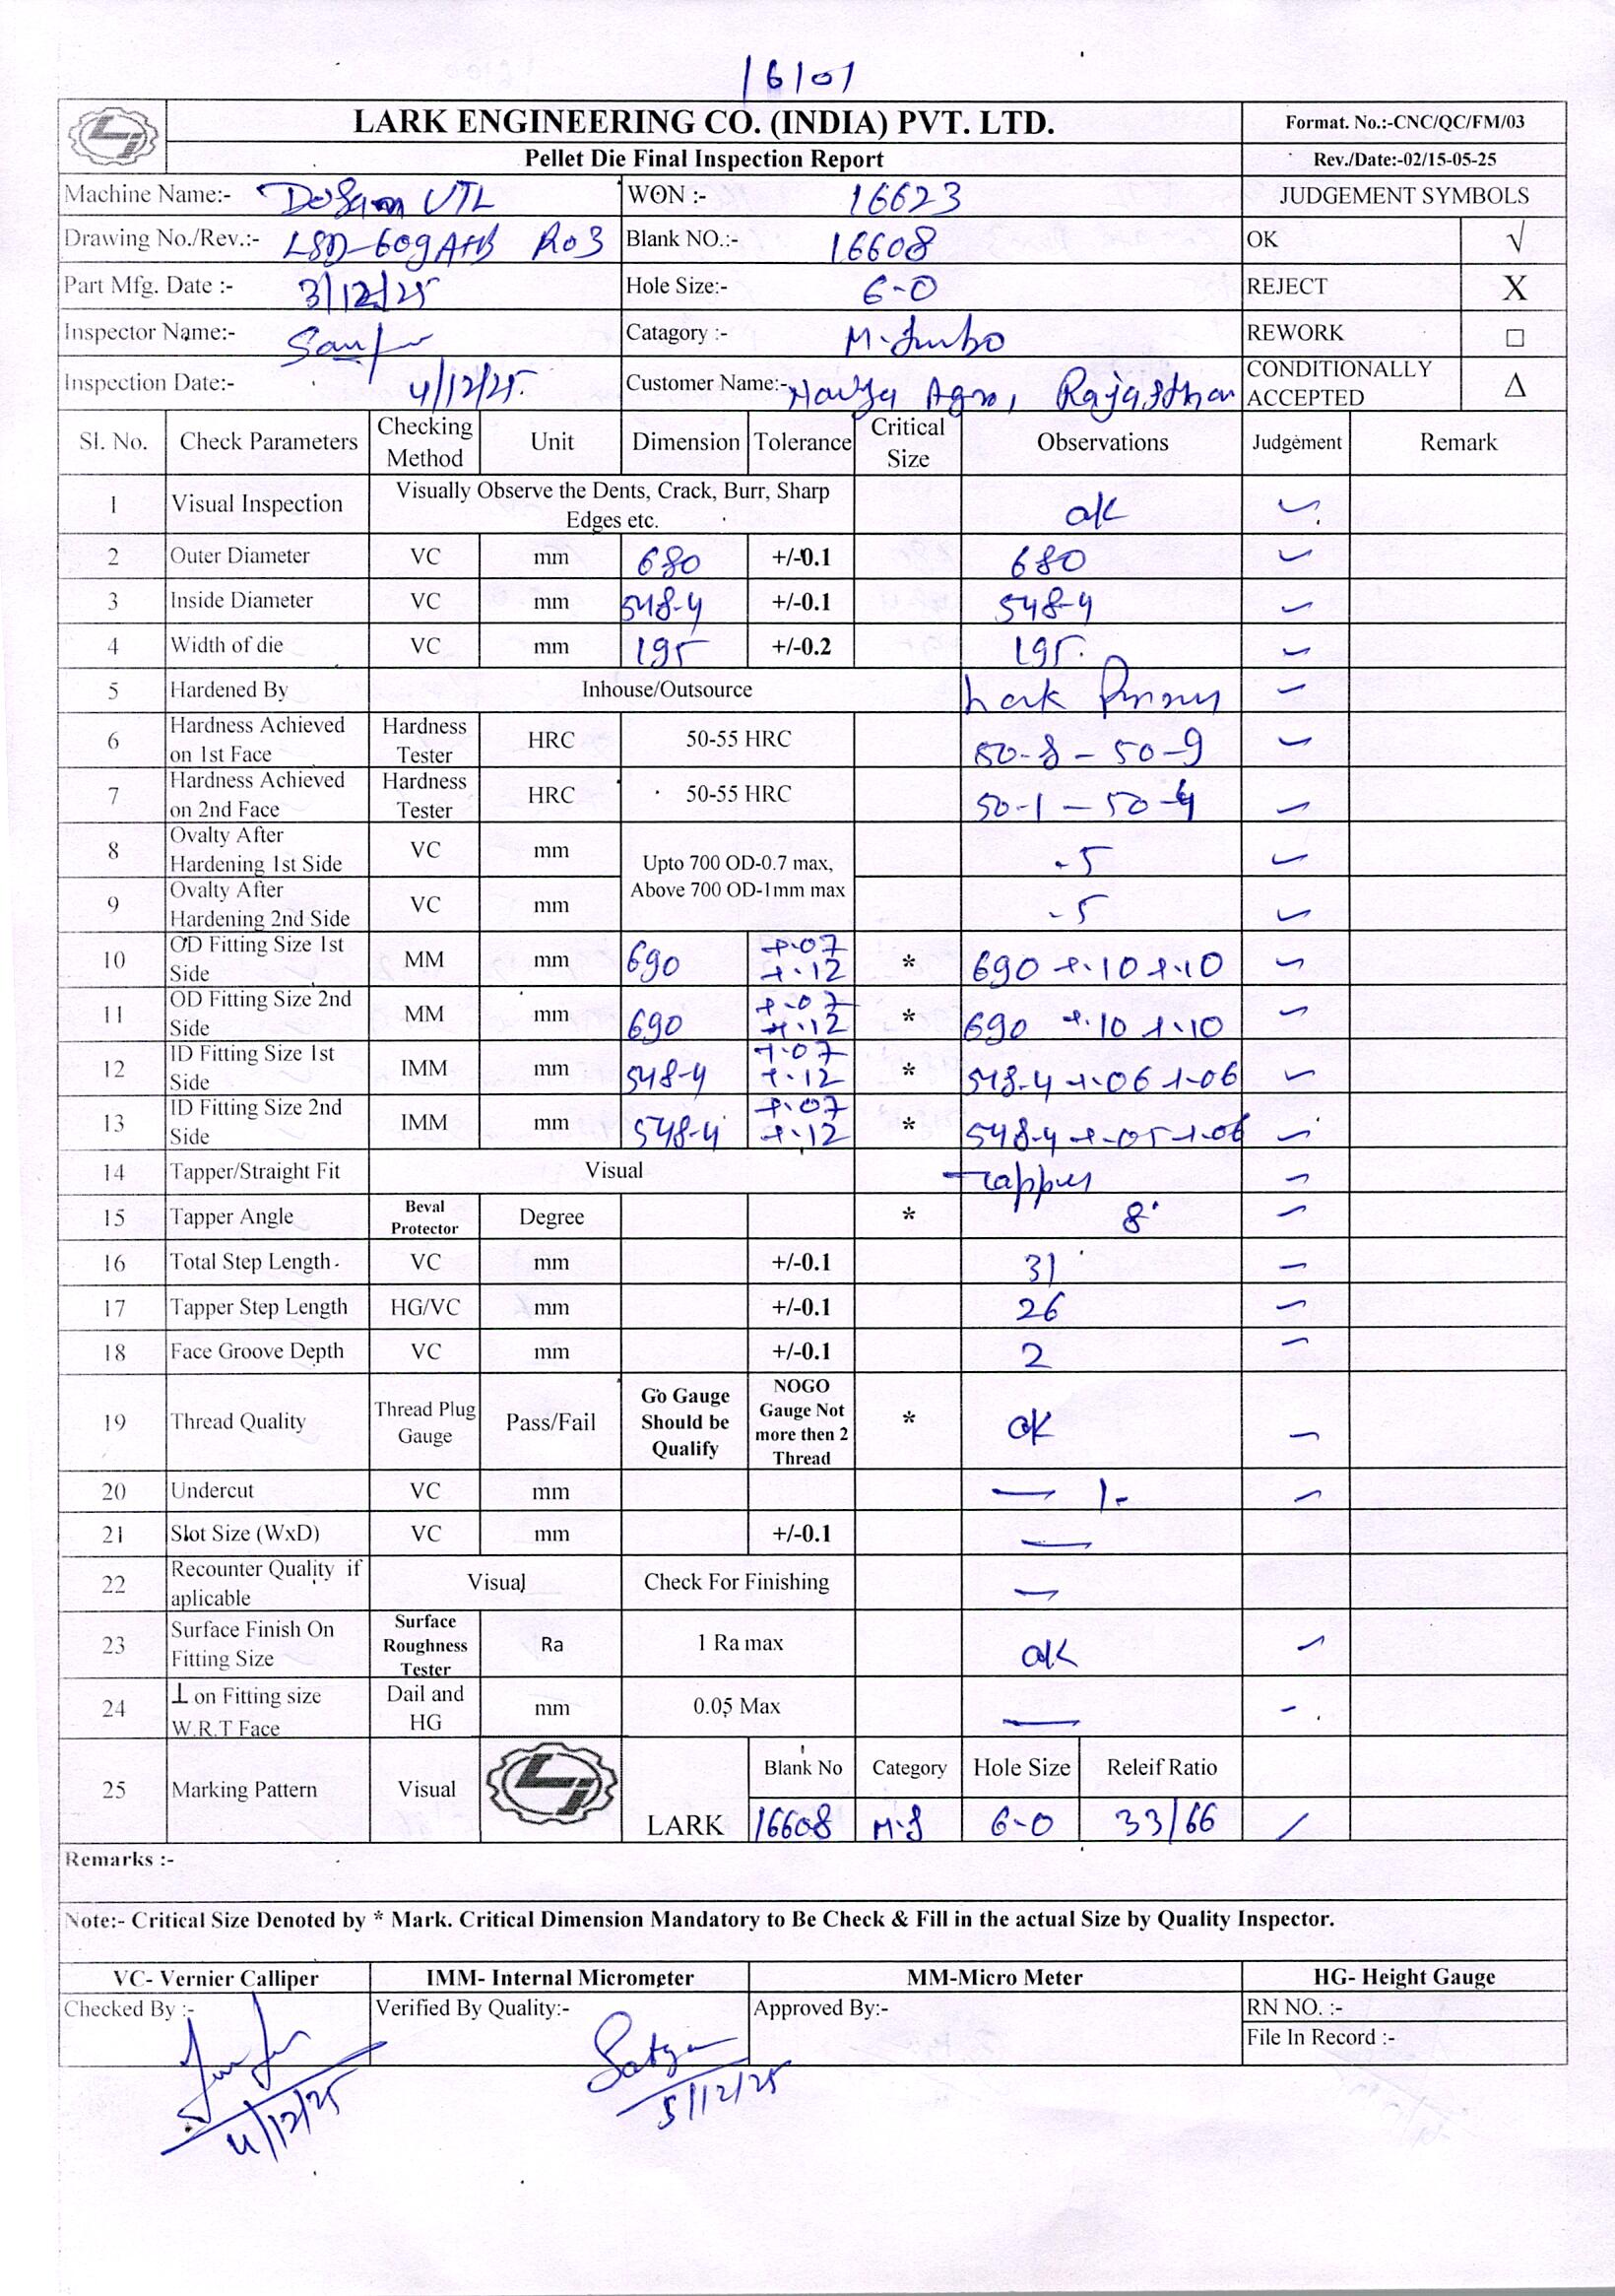 16101
LARK ENGINEERING CO. (INDIA) PVT. LTD. Format. No.:-CNC/QC/FM/03
Pellet Die Final Inspection Report Rev./Date:-02/15-05-25
Machine Name:- VTL WON :- 16623 JUDGEMENT SYMBOLS
Drawing No./Rev.:- LSD-609AHB R03 Blank NO.:- 16608 OK √
Part Mfg. Date :- 3/12/25 Hole Size:- 6-0 REJECT X
Inspector Name:- Catagory :- M-Jumbo REWORK □
Inspection Date:- 4/12/25. Customer Name:- Agro, Rajasthan CONDITIONALLY ACCEPTED Δ
Sl. No. Check Parameters Checking Method Unit Dimension Tolerance Critical Size Observations Judgement Remark
1 Visual Inspection Visually Observe the Dents, Crack, Burr, Sharp Edges etc. ok ✓
2 Outer Diameter VC mm 680 +/-0.1 680 ✓
3 Inside Diameter VC mm 548-4 +/-0.1 548-4 ✓
4 Width of die VC mm 195 +/-0.2 195. ✓
5 Hardened By Inhouse/Outsource Lark ✓
6 Hardness Achieved on 1st Face Hardness Tester HRC 50-55 HRC 50-8 - 50-9 ✓
7 Hardness Achieved on 2nd Face Hardness Tester HRC 50-55 HRC 50-1 - 50-4 ✓
8 Ovalty After Hardening 1st Side VC mm Upto 700 OD-0.7 max, Above 700 OD-1mm max -5 ✓
9 Ovalty After Hardening 2nd Side VC mm -5 ✓
10 OD Fitting Size 1st Side MM mm 690 +.07 +.12 * 690 +.10 +.10 ✓
11 OD Fitting Size 2nd Side MM mm 690 +.07 +.12 * 690 +.10 +.10 ✓
12 ID Fitting Size 1st Side IMM mm 548-4 +.07 +.12 * 548-4 +.06 +.06 ✓
13 ID Fitting Size 2nd Side IMM mm 548-4 +.07 +.12 * 548-4 +.05 +.06 ✓
14 Tapper/Straight Fit Visual Tapper ✓
15 Tapper Angle Beval Protector Degree * 8° ✓
16 Total Step Length VC mm +/-0.1 31 ✓
17 Tapper Step Length HG/VC mm +/-0.1 26 ✓
18 Face Groove Depth VC mm +/-0.1 2 ✓
19 Thread Quality Thread Plug Gauge Pass/Fail Go Gauge Should be Qualify NOGO Gauge Not more then 2 Thread * ok ✓
20 Undercut VC mm — ✓
21 Slot Size (WxD) VC mm +/-0.1 —
22 Recounter Quality if aplicable Visual Check For Finishing —
23 Surface Finish On Fitting Size Surface Roughness Tester Ra 1 Ra max ok ✓
24 ⊥ on Fitting size W.R.T Face Dail and HG mm 0.05 Max — -
25 Marking Pattern Visual LARK Blank No Category Hole Size Releif Ratio
16608 M-J 6-0 33/66 ✓
Remarks :-
Note:- Critical Size Denoted by * Mark. Critical Dimension Mandatory to Be Check & Fill in the actual Size by Quality Inspector.
VC- Vernier Calliper IMM- Internal Micrometer MM-Micro Meter HG- Height Gauge
Checked By :- Verified By Quality:- Approved By:- RN NO. :-
File In Record :-
4/12/25 5/12/25